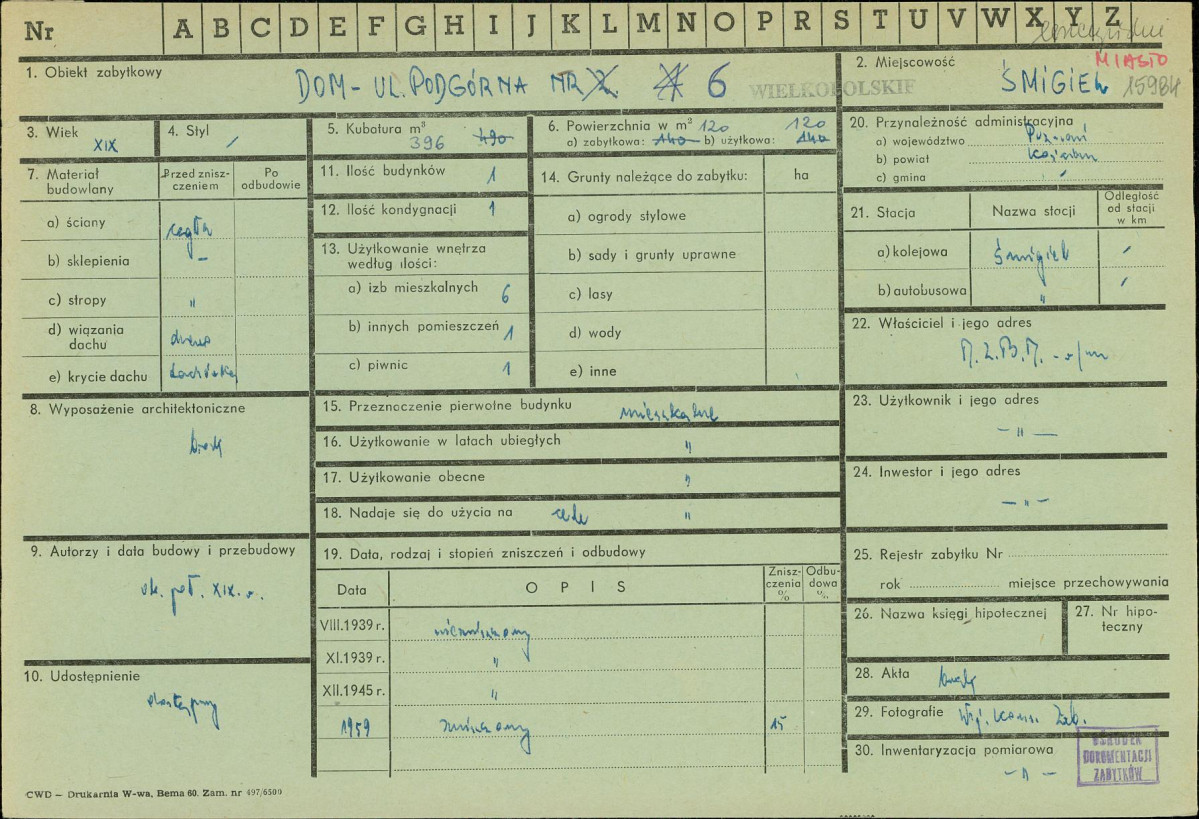 Nr A B C D E F G H I J K L M N O P R S T U V W X Y Z
1. Obiekt zabytkowy
DOM - UL. PODGÓRNA NR 2 6
WIELKOPOLSKIE
2. Miejscowość
MIASTO
ŚMIGIEL 15984
3. Wiek
XIX
4. Styl
/
5. Kubatura m³
396 490
6. Powierzchnia w m² 120 120
a) zabytkowa: 140 b) użytkowa: 140
20. Przynależność administracyjna
a) województwo Poznań
b) powiat Kościan
c) gmina /
7. Materiał budowlany
Przed zniszczeniem
Po odbudowie
a) ściany cegła
b) sklepienia –
c) stropy "
d) wiązania dachu drewno
e) krycie dachu dachówka
11. Ilość budynków 1
12. Ilość kondygnacji 1
13. Użytkowanie wnętrza według ilości:
a) izb mieszkalnych 6
b) innych pomieszczeń 1
c) piwnic 1
14. Grunty należące do zabytku: ha
a) ogrody stylowe
b) sady i grunty uprawne
c) lasy
d) wody
e) inne
21. Stacja
Nazwa stacji
Odległość od stacji w km
a) kolejowa Śmigiel /
b) autobusowa " /
22. Właściciel i jego adres
M.Z.B.M. - w/m
8. Wyposażenie architektoniczne
brak
15. Przeznaczenie pierwotne budynku mieszkalne
16. Użytkowanie w latach ubiegłych "
17. Użytkowanie obecne "
18. Nadaje się do użycia na cele "
23. Użytkownik i jego adres
– " –
24. Inwestor i jego adres
– " –
9. Autorzy i data budowy i przebudowy
poł. XIX w.
19. Data, rodzaj i stopień zniszczeń i odbudowy
Data
OPIS
Zniszczenia %
Odbudowa %
VIII.1939 r. niezniszczony
XI.1939 r. "
XII.1945 r. "
1959 zniszczony 15
25. Rejestr zabytku Nr
rok miejsce przechowywania
26. Nazwa księgi hipotecznej
27. Nr hipoteczny
10. Udostępnienie
dostępny
28. Akta brak
29. Fotografie Woj. Kons. Zab.
30. Inwentaryzacja pomiarowa
– " –
OŚRODEK
DOKUMENTACJI
ZABYTKÓW
CWD – Drukarnia W-wa, Bema 60. Zam. nr 497/6500